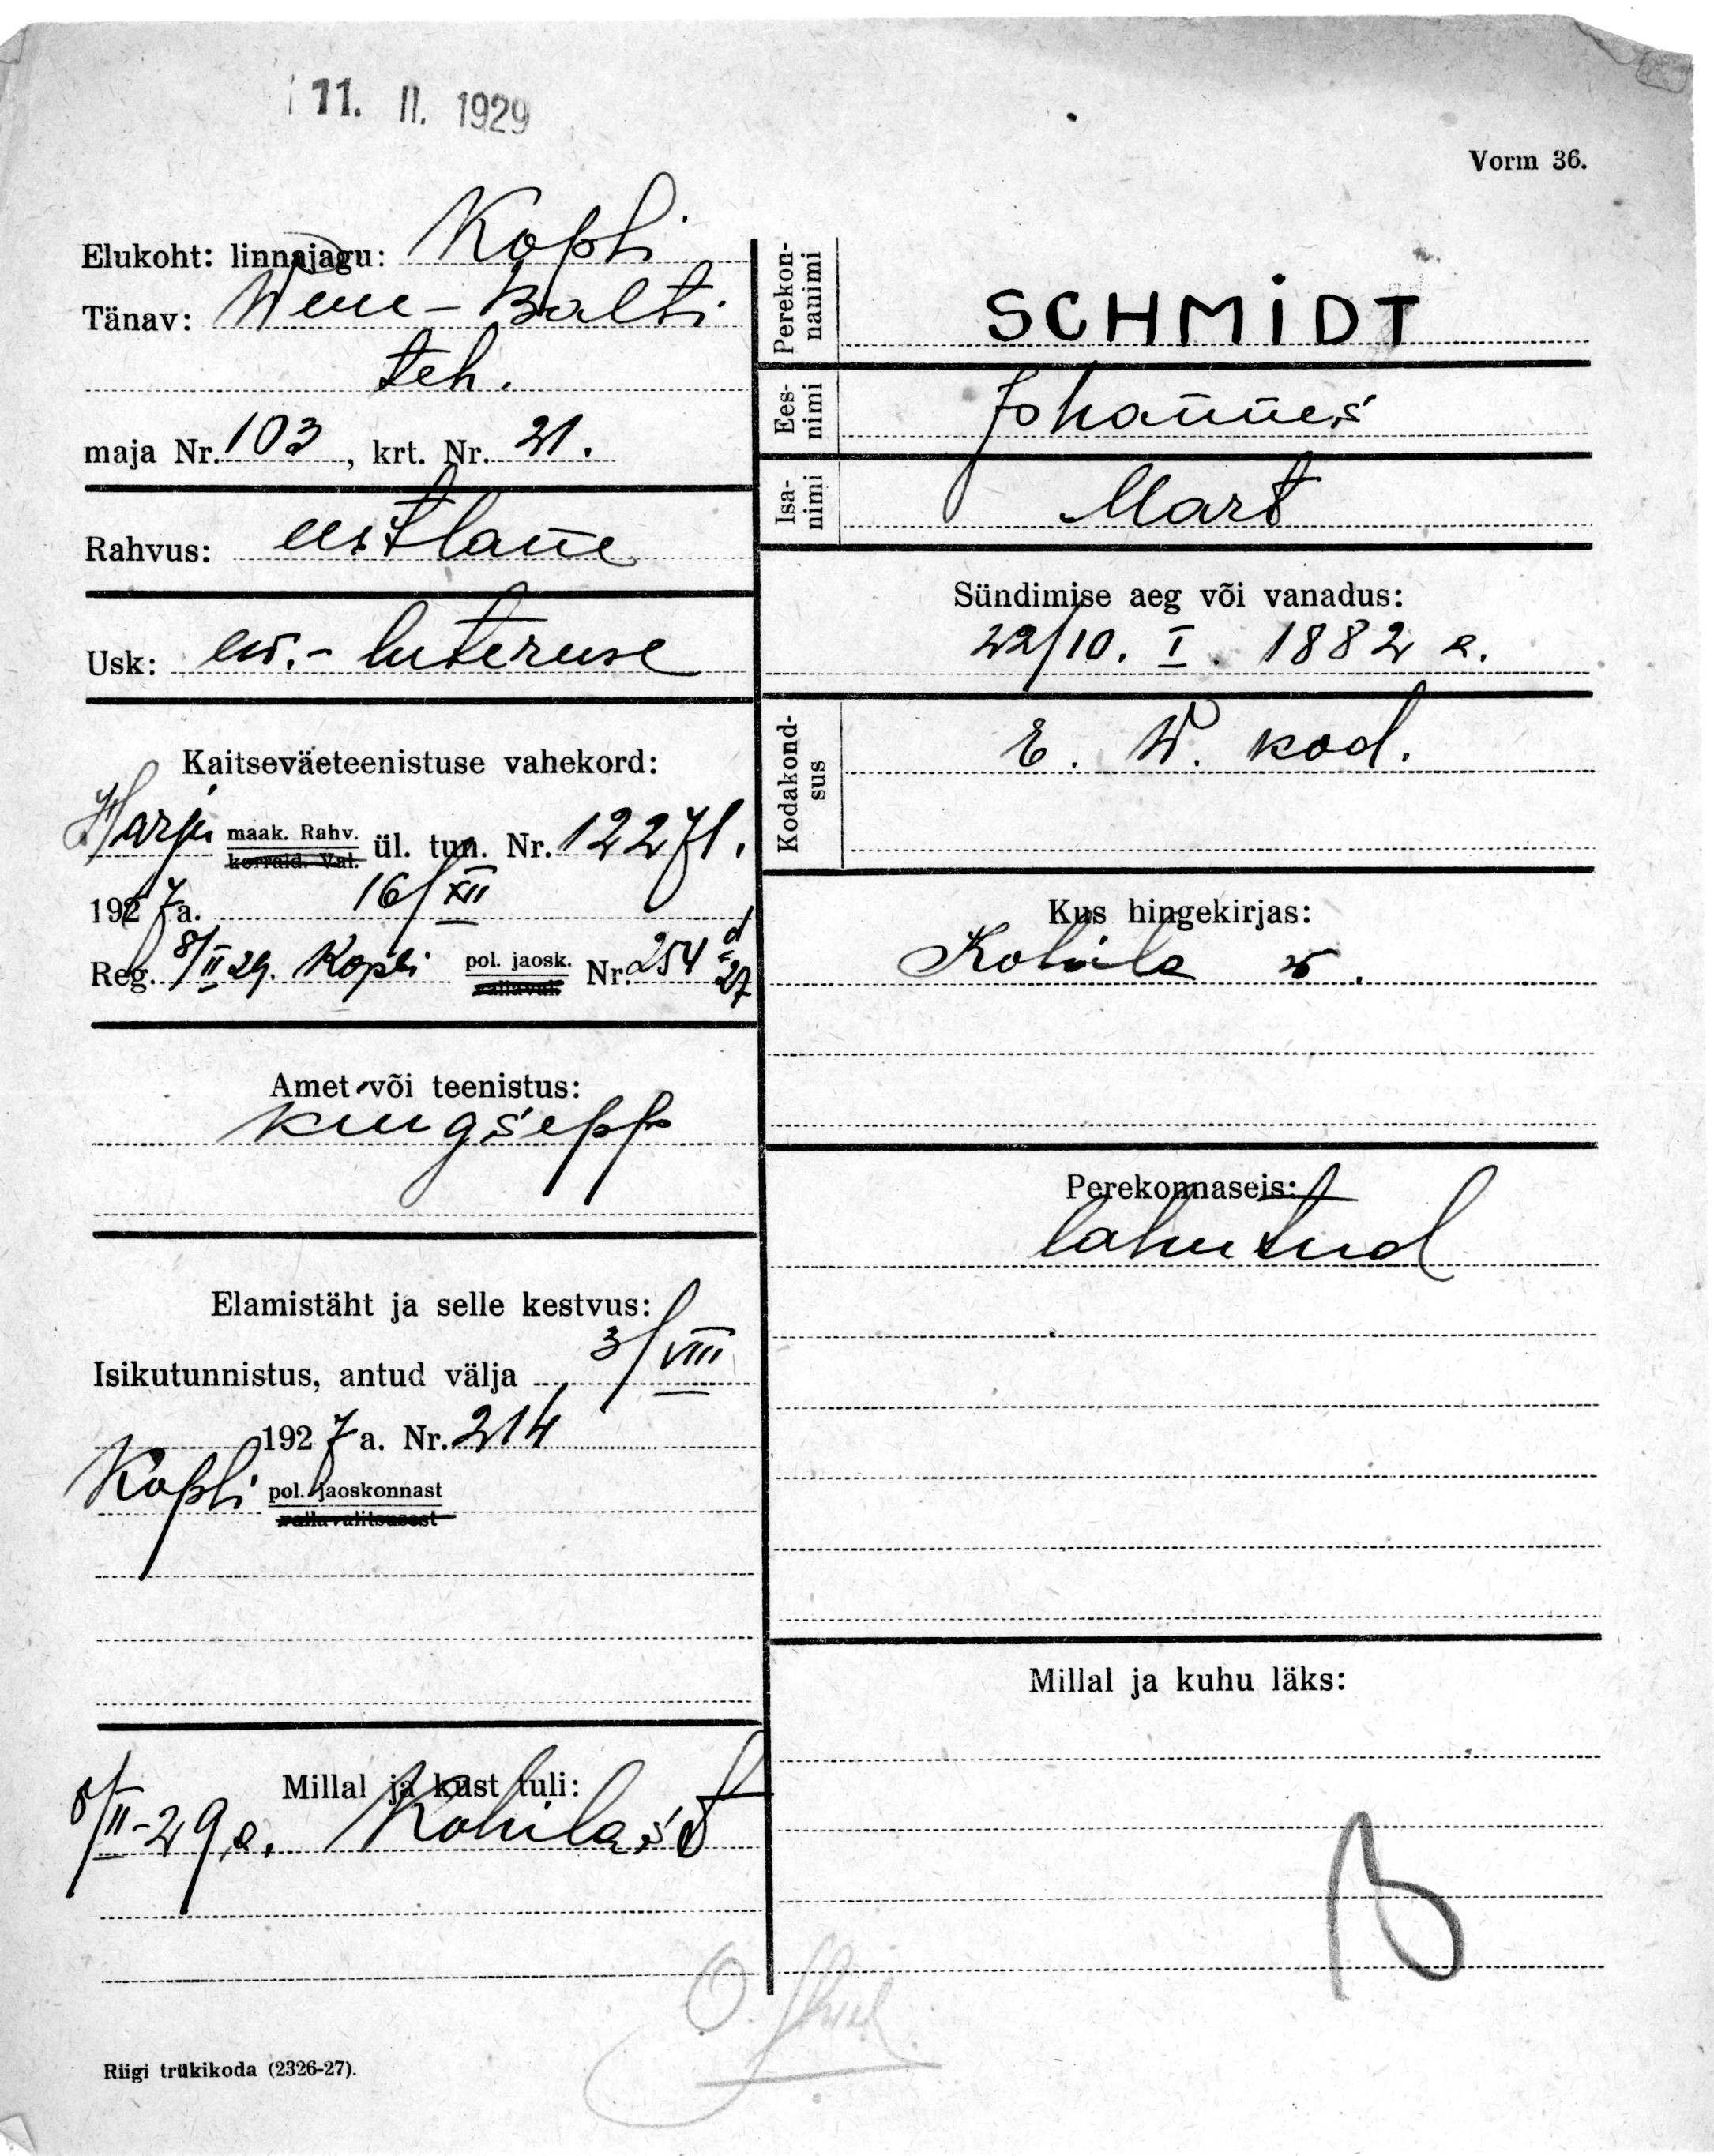 11. II. 1929
Vorm 36.
Elukoht: linnajagu: Kopli
Tänav: Wene-Balti
teh.
maja Nr. 103, krt. Nr. 21.
Rahvus: eestlane
Usk: ev.-luteruse
Kaitseväeteenistuse vahekord:
Harju maak. Rahv. ül. tun. Nr. 12271.
korrald. Val.
1927 a. 16/XII
Reg. 8/II 29. Kopli pol. jaosk. Nr. 254 d
vallaval. 27
Amet või teenistus:
kingsepp
Elamistäht ja selle kestvus:
Isikutunnistus, antud välja 3/VIII
1927 a. Nr. 214
Kopli pol. jaoskonnast
vallavalitsusest
Millal ja kust tuli:
II-29 a. Kohilast
Perekon-
nanimi
SCHMIDT
Ees-
nimi
Johannes
Isa-
nimi
Mart
Sündimise aeg või vanadus:
22/10. I. 1882 a.
Kodakond-
sus
E. W. kod.
Kus hingekirjas:
Kohila v.
Perekonnaseis:
lahutud
Millal ja kuhu läks:
Riigi trükikoda (2326-27).